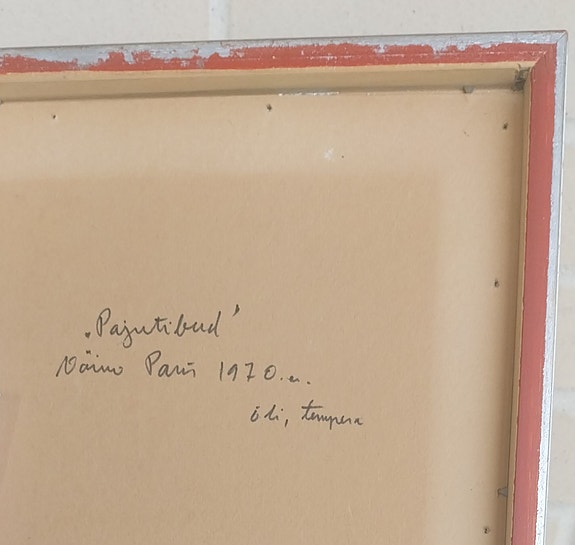 „Pajutibud"
Väino Paris 1970.a.
õli, tempera